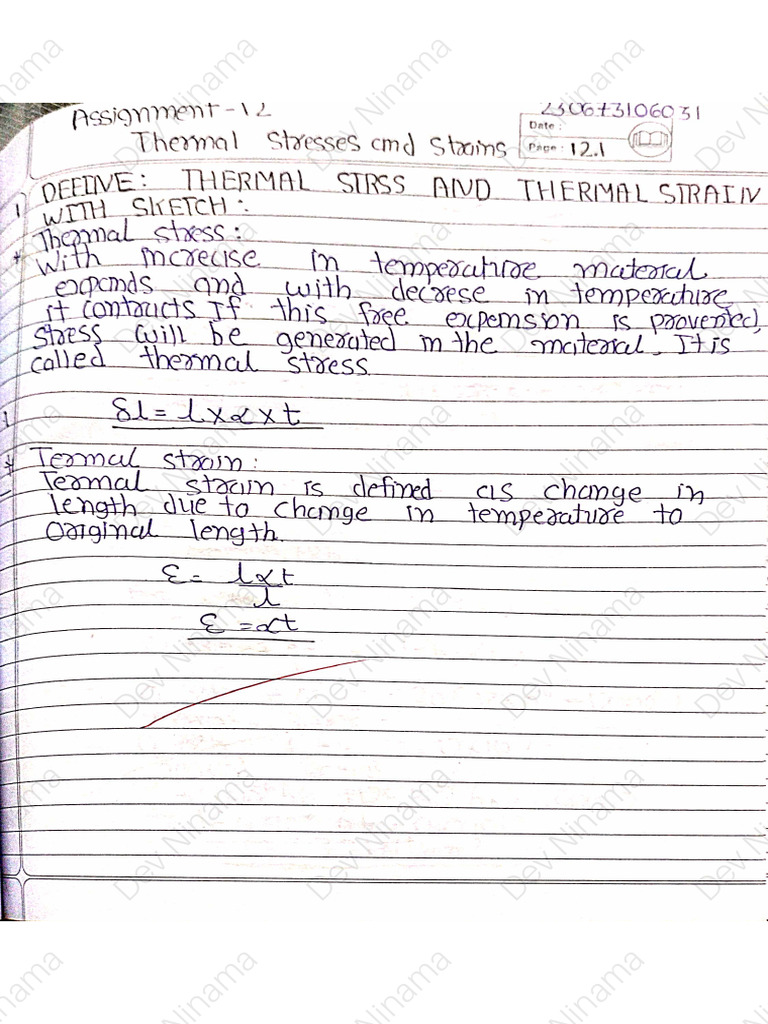 Assignment-12
230673106031
Thermal Stresses and Strains
Date :
Page : 12.1
1 DEFINE: THERMAL STRSS AND THERMAL STRAIN
WITH SKETCH:
* Thermal stress:
With increcise in temperature material
expands and with decrese in temperature
it contracts If this free expension is provented,
stress will be generated in the material. It is
called thermal stress
1 δl = l × α × t
* Termal strain:
Termal strain is defined as change in
length due to change in temperature to
Original length.
ε = lαt
l
ε = αt
Dev Ninama